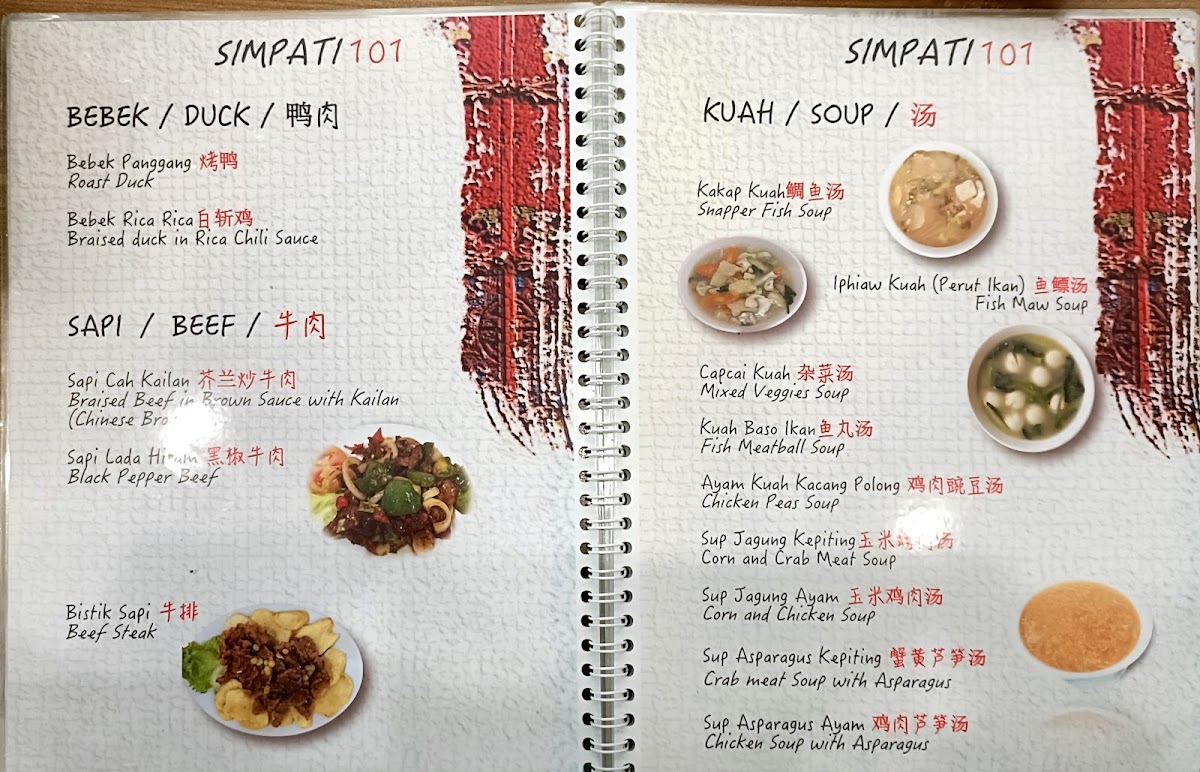 SIMPATI 101
BEBEK / DUCK / 鸭肉
Bebek Panggang 烤鸭
Roast Duck
Bebek Rica Rica 白斩鸡
Braised duck in Rica Chili Sauce
SAPI / BEEF / 牛肉
Sapi Cah Kailan 芥兰炒牛肉
Braised Beef in Brown Sauce with Kailan
(Chinese
Sapi Lada 黑椒牛肉
Black Pepper Beef
Bistik Sapi 牛排
Beef Steak
SIMPATI 101
KUAH / SOUP / 汤
Kakap Kuah 鲷鱼汤
Snapper Fish Soup
Iphiaw Kuah (Perut Ikan) 鱼鳔汤
Fish Maw Soup
Capcai Kuah 杂菜汤
Mixed Veggies Soup
Kuah Baso Ikan 鱼丸汤
Fish Meatball Soup
Ayam Kuah Kacang Polong 鸡肉豌豆汤
Chicken Peas Soup
Sup Jagung Kepiting 玉米
Corn and Crab Meat Soup
Sup Jagung Ayam 玉米鸡肉汤
Corn and Chicken Soup
Sup Asparagus Kepiting 蟹黄芦笋汤
Crab meat Soup with Asparagus
Sup Asparagus Ayam 鸡肉芦笋汤
Chicken Soup with Asparagus